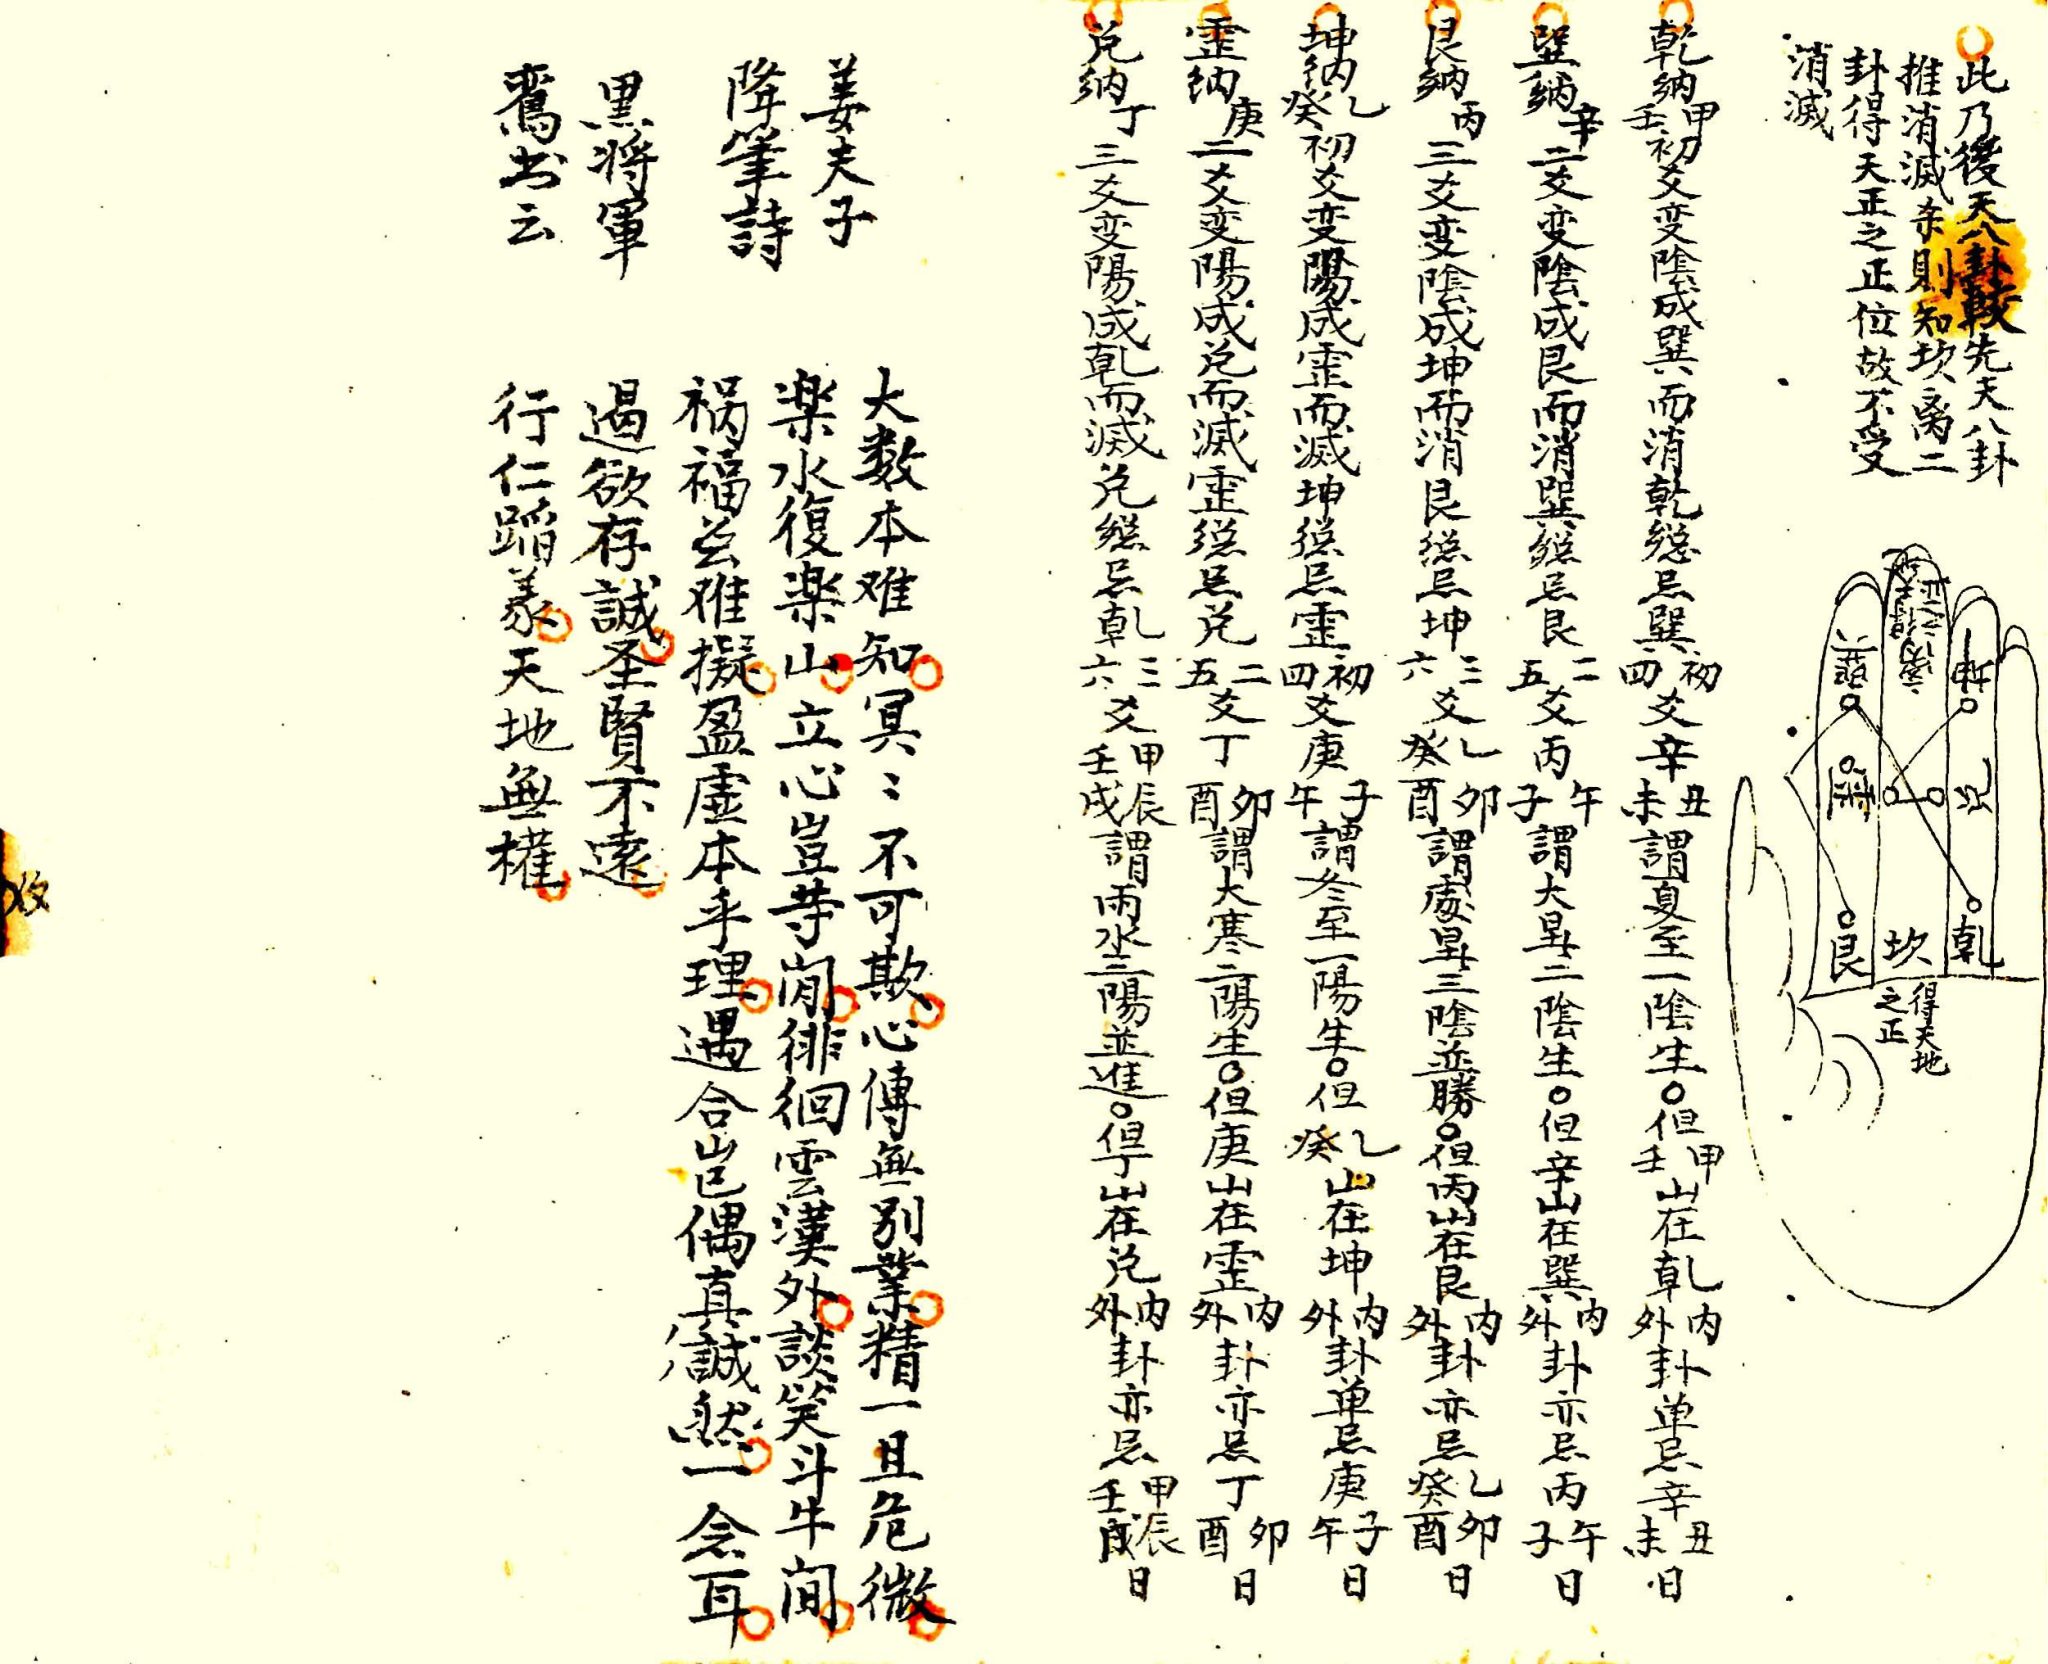 此乃後天八卦較先天八卦
推消滅杀則知坎离二
卦得天正之正位故不受
消滅
坤
兑
乾
坎
巽
震
艮
得天地
之正
乾納甲壬初爻变陰成巽而消乾緫忌巽初四爻辛丑未謂夏至一陰生○但甲壬山在乹内外卦单忌辛丑未日
巽納辛二爻变陰成艮而消巽緫忌艮二五爻丙午子謂大暑二陰生○但辛山在巽内外卦亦忌丙午子日
艮納丙三爻变陰成坤而消艮緫忌坤三六爻乙癸卯酉謂處暑三陰並勝○但丙山在艮内外卦亦忌乙癸卯酉日
坤納乙癸初爻变陽成霊而滅坤緫忌霊初四爻庚子午謂冬至一陽生○但乙癸山在坤内外卦单忌庚子午日
霊納庚二爻变陽成兑而滅霊緫忌兑二五爻丁卯酉謂大寒二陽生○但庚山在霊内外卦亦忌丁卯酉日
兑納丁三爻变陽成乹而滅兑緫忌乹三六爻甲壬辰戌謂雨水三陽並進○但丁山在兑内外卦亦忌甲壬辰戌日
姜夫子
降筆詩
大数本难知冥〻不可欺心傳無别業精一且危微
楽水復楽山立心豈等閒徘徊雲漢外談笑斗牛間
黒将軍
鸞书云
祸福兮难擬盈虚本乎理遇合岂偶真誠然一念耳
遏欲存誠圣賢不遠
行仁蹈義天地無權